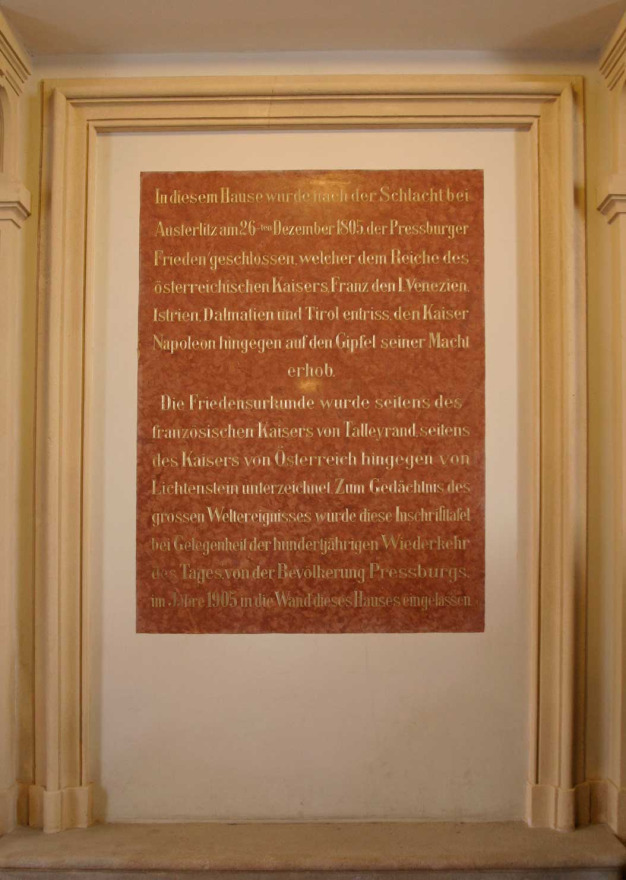 In diesem Hause wurde nach der Schlacht bei
Austerlitz am 26-ten Dezember 1805, der Pressburger
Frieden geschlossen, welcher dem Reiche des
österreichischen Kaisers, Franz den I. Venezien,
Istrien, Dalmatien und Tirol entriss, den Kaiser
Napoleon hingegen auf den Gipfel seiner Macht
erhob.
Die Friedensurkunde wurde seitens des
französischen Kaisers von Talleyrand, seitens
des Kaisers von Österreich hingegen von
Lichtenstein unterzeichnet. Zum Gedächtnis des
grossen Weltereignisses wurde diese Inschrifttafel
bei Gelegenheit der hundertjährigen Wiederkehr
des Tages, von der Bevölkerung Pressburgs,
im Jahre 1905, in die Wand dieses Hauses eingelassen.